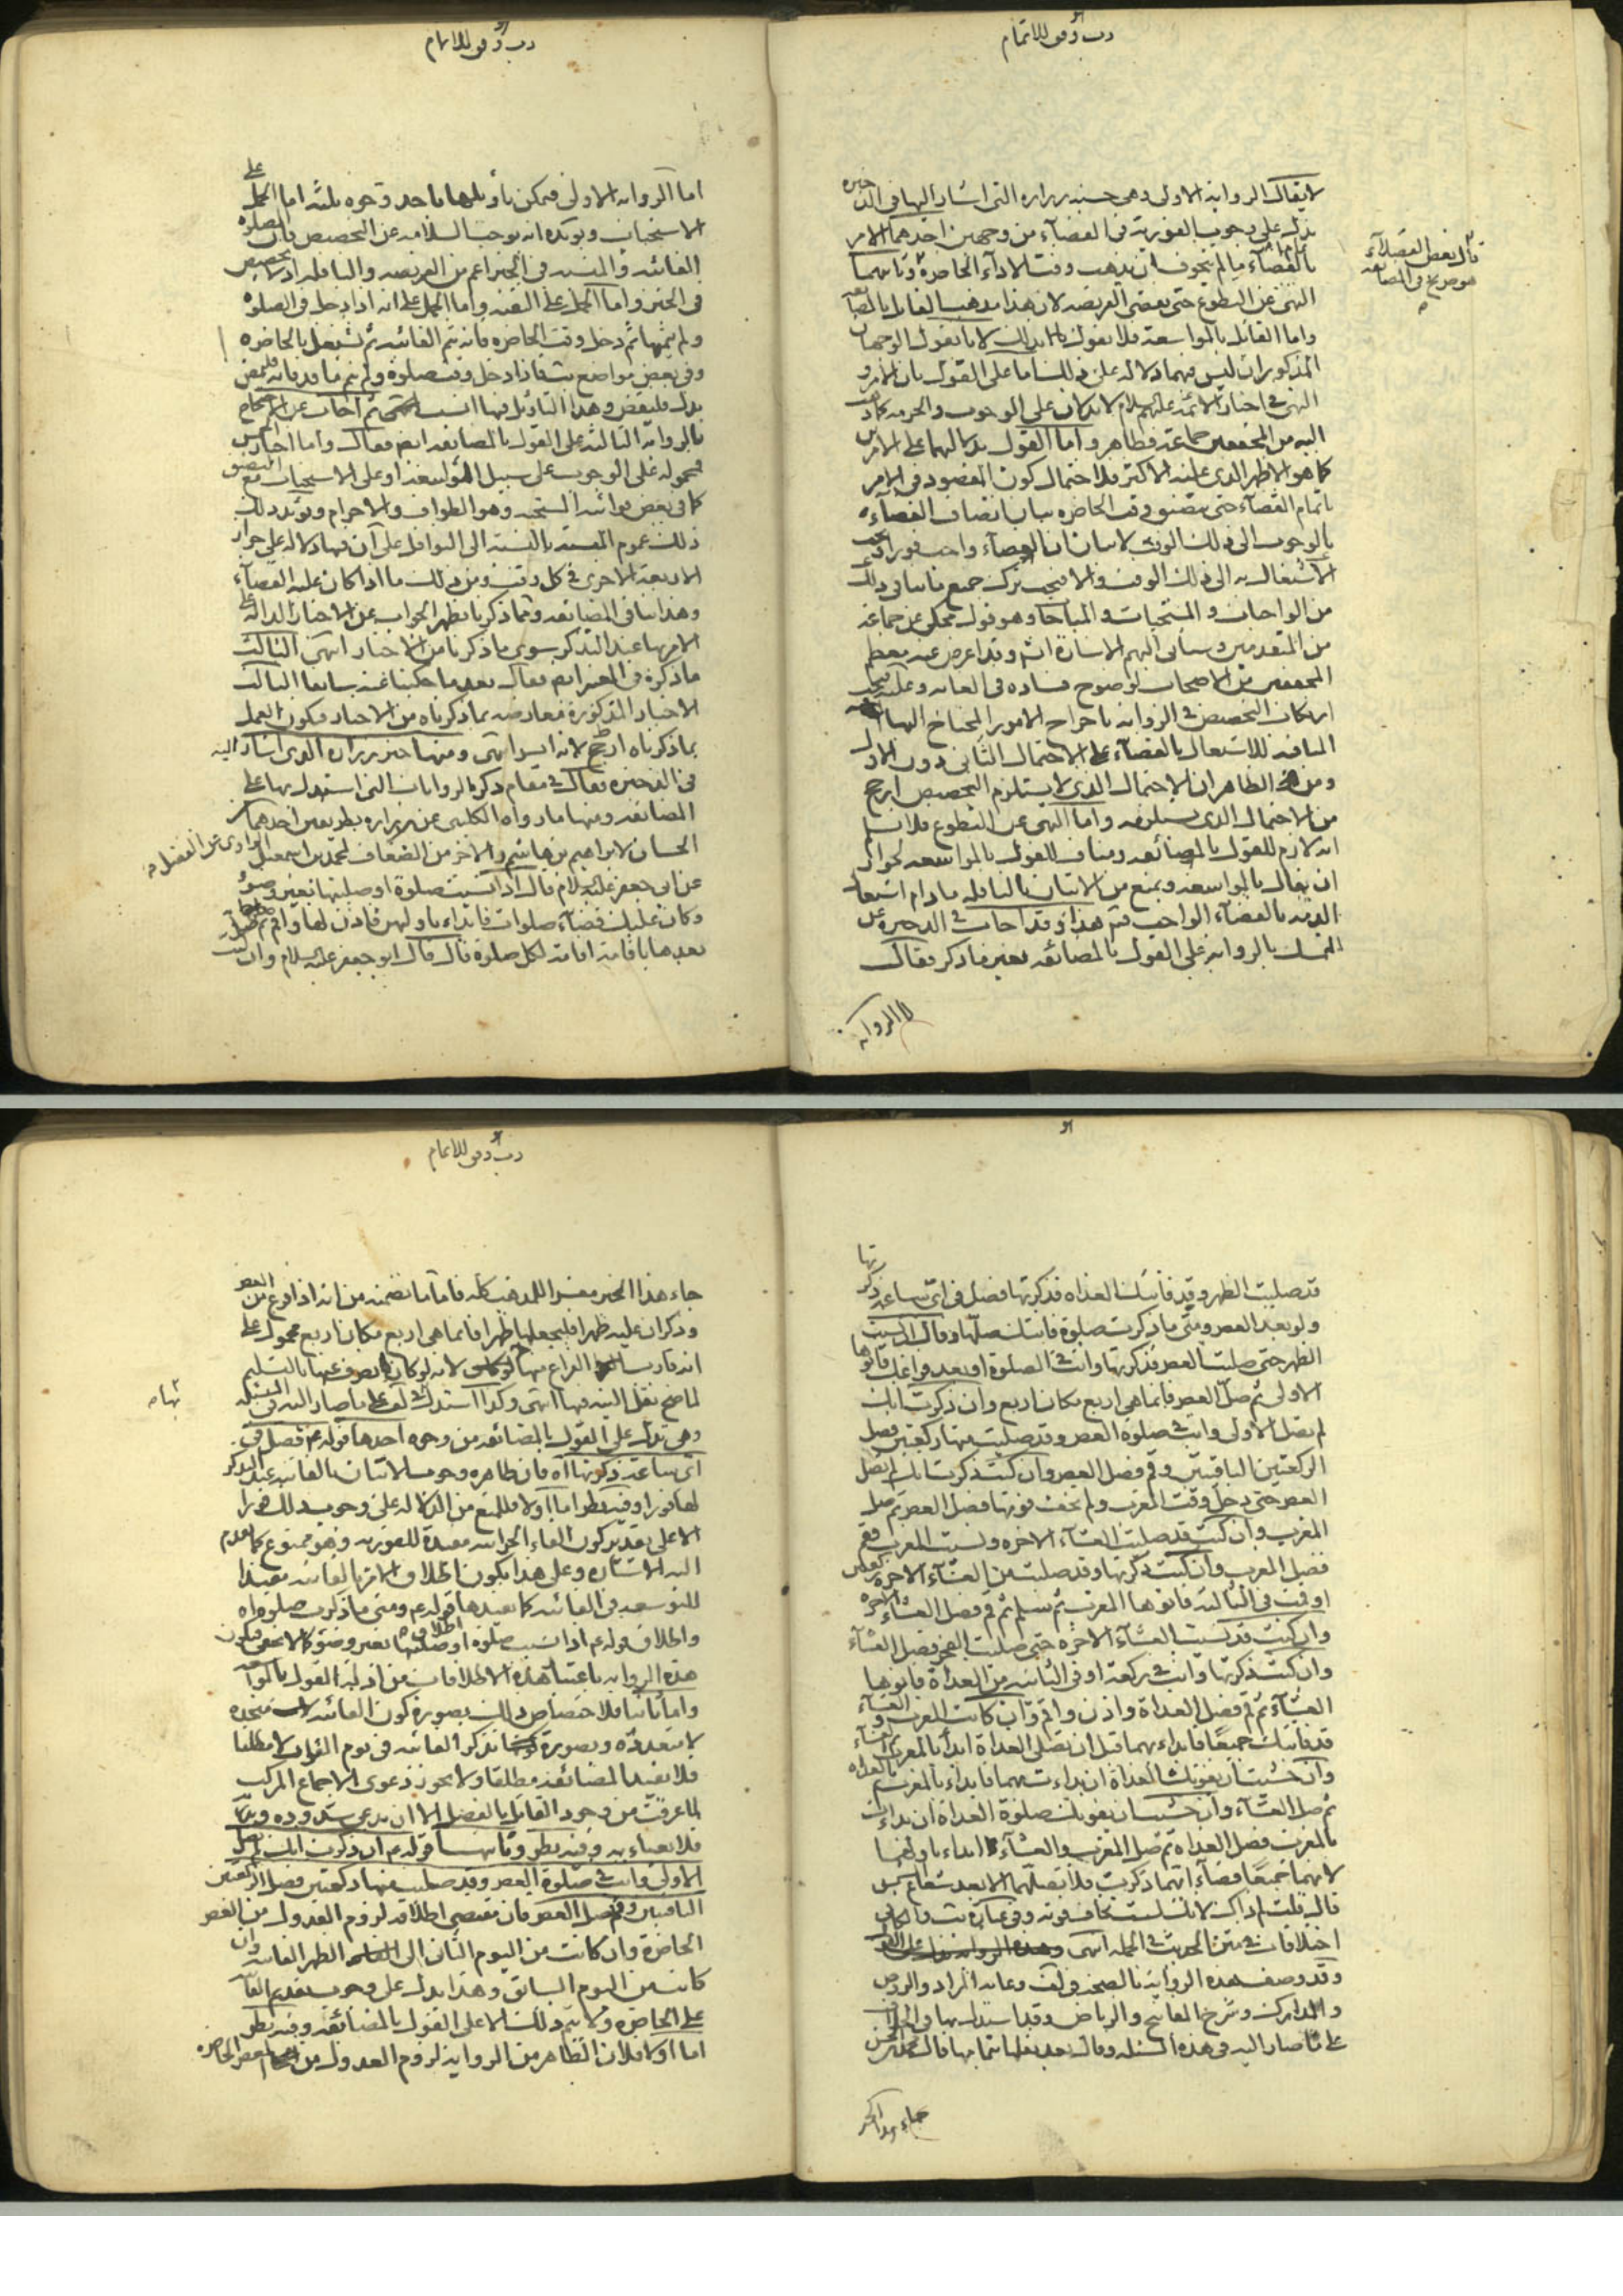 رب وفق للاتمام
لا يقال الرواية الاولى وهى حسنة زرارة التى اشار اليها فى الذخيرة
تدل على وجوب الفورية فى القضآء من وجهين احدهما الامر
بالقضآء ما لم يتخوف ان يذهب وقت الاداء الحاضرة وثانيهما
النهى عن التطوع حتى يقضى الفريضة لان هذا مذهب القايل بالمضايقة
واما القائل بالمواسعة فلا يقول بذلك لانا نقول الوجهان
المذكوران ليس فيهما دلالة على ذلك اما على القول بان الامر و
النهى فى اخبار الائمة عليهم السلام لا يدلان على الوجوب والحرمة كما ذهب
اليه من المحققين جماعة فظاهر واما القول بدلالتهما على الامرين
كما هو الاظهر الذى عليه الاكثر فلاحتمال كون المقصود فى الامر
باتمام القضآء حتى يتضيق وقت الحاضرة بيان اتصاف القضآء
بالوجوب الى ذلك الوقت لا بيان ان القضآء واجب فورا يجب
الاشتغال به الى ذلك الوقت والا فيجب ترك جميع ما ينافى ذلك
من الواجبات والمستحبات والمباحات وهو قول محكى عن جماعة
من المتقدمين وسيأتى اليهم الاشارة انش وقد اعرض عنه معظم
المحققين من الاصحاب لوضوح فساده فى الغاية وعليه يجب
ارتكاب التخصيص فى الرواية باخراج الامور المحتاج اليها
المنافية للاشتغال بالقضآء على الاحتمال الثانى دون الاول
ومن الظاهر ان الاحتمال الذى لا يستلزم التخصيص ارجح
من الاحتمال الذى يستلزمه واما النهى عن التطوع فلا نسلم
انه لازم للقول بالمضائقة ومناف للقول بالمواسعة لجواز
ان يقال بالمواسعة ويمنع من الاتيان بالنافلة ما دام اشتغال
الذمة بالقضآء الواجب فتم هذا وقد اجاب فى الذخيرة عن
التمسك بالرواية على القول بالمضائقة بغير ما ذكر فقال
قال بعض الفضلآء
هو صريح فى المضايقة
اما الرواية
رب وفق للاتمام
اما الرواية الاولى فيمكن تأويلها باحد وجوه ثلثة اما الحمل على
الاستحباب ويؤيده انه يوجب السلامة عن التخصيص فان الصلوة
الفائتة والمنسية فى الخبر اعم من الفريضة والنافلة اذ لا تخصيص
فى الخبر واما الحمل على التقية واما الحمل على انه اذا دخل فى الصلوة
ولم يتمها ثم دخل وقت الحاضرة فانه يتم الفائتة ثم تشتغل بالحاضرة
وفى بعض مواضع يب فاذا دخل وقت صلوة ولم يتم ما قد فاته فليمض
بدل فليقض وهذا التاويل فيها انسب انتهى ثم اجاب عن الاحتجاج
بالرواية الثالثة على القول بالمضايقة ايض فقال واما اخبار الخمس
فمحمولة على الوجوب على سبيل المواسعة او على الاستحباب مع التضيق
كما فى بعض قرائنه المستحبة وهو الطواف والاحرام ويؤيد ذلك
ذلك عموم المنسية بالنسبة الى النوافل على آن فيها دلالة على جواز
الاربعة الاخرى فى كل وقت ومن ذلك ما اذا كان عليه القضآء
وهذا ينافى المضائقة ومما ذكرنا يظهر الجواب عن الاخبار الدالة على
الامر بها عند التذكر سوى ما ذكرنا من الاخبار انتهى الثالث
ما ذكره فى المعتبر ايض فقال بعد ما حكينا عنه سابقا الثالث
الاخبار المذكورة معارضة بما ذكرناه من الاخبار فيكون العمل
بما ذكرناه ارجح لانه ايسر انتهى ومنها خبر زرارة الذى اشار اليه
فى الذخيرة فقال فى مقام ذكر الروايات التى استدل بها على
المضائقة ومنها ما رواه الكلينى عن زرارة بطريقين احدهما من
الحسان لابراهيم بن هاشم والآخر من الضعاف لمحمد بن اسمعيل الراوى عن الفضل
عن ابى جعفر عليه السلام قال اذا نسيت صلوة او صليتها بغير وضوء
وكان عليك قضآء صلوات فابداء باوليهن فاذن لها واقم ثم صلها ثم صل
بعدها باقامة اقامة لكل صلوة قال قال ابو جعفر عليه السلام وان كنت
قد صليت الظهر وقد فاتتك الغداة فذكرتها فصل فى اى ساعة ذكرتها
ولو بعد العصر ومتى ما ذكرت صلوة فاتتك صلها وقال اذا نسيت
الظهر حتى صليت العصر فذكرتها وانت فى الصلوة او بعد فراغك فانوها
الاولى ثم صل العصر فانما هى اربع مكان اربع وان ذكرت انك
لم تصل الاولى وانت فى صلوة العصر وقد صليت منها ركعتين فصل
الركعتين الباقيتين وقم فصل العصر وان كنت ذكرت انك لم تصل
العصر حتى دخل وقت المغرب ولم تخف فوتها فصل العصر ثم صل
المغرب وان كنت قد صليت العشآء الاخرة ونسيت المغرب فقم
فصل المغرب وان كنت ذكرتها وقد صليت من العشآء الاخرة ركعتين
او قمت فى الثالثة فانوها المغرب ثم سلم ثم قم فصل العشآء الاخرة
وان كنت قد نسيت العشآء الاخرة حتى صليت الفجر فصل العشآء
وان كنت ذكرتها وانت فى ركعة او فى الثانية من الغداة فانوها
العشآء ثم قم فصل الغداة واذن واقم وان كانت المغرب والعشآء
قد فاتتك جميعًا فابداء بهما قبل ان تصلى الغداة ابدأ بالمغرب ثم العشآء
وان خشيت ان تفوتك الغداة ان بداءت بهما فابداء بالمغرب ثم بالغداة
ثم صل العشآء وان خشيت ان تفوتك صلوة الغداة ان بداءت
بالمغرب فصل الغداة ثم صل المغرب والعشآء ابداء باولهما
لانهما جميعًا قضآء ايهما ذكرت فلا تصلهما الا بعد شعاع الشمس
قال قلت لم ذاك لانك لست تخاف فوته وفى عبارة يب والكافى
اختلافات فى متن الحديث فى الجملة انتهى
وقد وصف هذه الرواية بالصحة فى لف وغاية المراد والروض
والمدارك وشرح المفاتيح والرياض وقد استدل بها فى الخلاف
على ما صار اليه فى هذه المسئلة وقال بعد نقلها بتمامها قال محمد بن الحسن
جاء هذا الخبر
رب وفق للاتمام
جاء هذا الخبر مفسرا للمذهب كله فاما ما تضمنه من انه اذا فرغ من العصر
وذكر ان عليه ظهرا فليجعلها ظهرا فانما هى اربع مكان اربع محمول على
انه قارب الفراغ منها لانه لو كان انصرف عنها بالتسليم
لما صح نقل النية فيها انتهى وكذا استدل فى لف على ما صار اليه فى المسئلة
وهى تدل على القول بالمضائقة من وجوه احدها قوله ع فصل فى
اى ساعة ذكرتها اه فان ظاهره وجوب الاتيان بالفائتة عند التذكر
لها فورا وفيه نظر اما اولا فللمنع من الدلالة على وجوب ذلك فورا
الا على تقدير كون الفاء الجزائية مفيدة للفورية وهو ممنوع كما تقدم
اليه الاشارة وعلى هذا يكون اطلاق الامر بالفائتة مفيدا
للتوسعة فى الفائتة كما يفيدها قوله ع ومتى ما ذكرت صلوة اه
واطلاق قوله ع اذا نسيت صلوة او صليتها بغير وضوء كما لا يخفى فيكون
هذه الرواية باعتبار هذه الاطلاقات من ادلة القول بالمواسعة
واما ثانيا فلاختصاص ذلك بصورة كون الفائتة متحدة
لا متعددة وبصورة تذكر الفائتة فى يوم الفوات لا مطلقا
فلا يفيد المضائقة مطلقا ولا يجوز دعوى الاجماع المركب
لما عرفت من وجود القائل بالفصل الا ان يدعى شذوذه وندرته
فلا يعباء به وفيه نظر وثانيها قوله ع ان ذكرت انك لم تصل
الاولى وانت فى صلوة العصر وقد صليت منها ركعتين فصل الركعتين
الباقيتين وقم فصل العصر فان مقتضى اطلاقه لزوم العدول من العصر
الحاضرة وان كانت من اليوم الثانى الى الظهر الفائتة وان
كانت من اليوم السابق وهذا يدل على وجوب تقديم الفائتة
على الحاضرة ولا يتم ذلك الا على القول بالمضائقة وفيه نظر
اما اولا فلان الظاهر من الرواية لزوم العدول من العصر الحاضرة